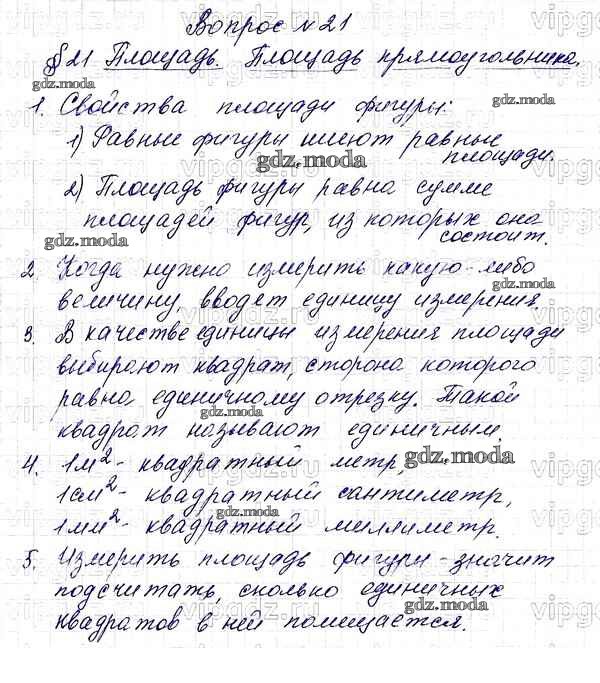 Вопрос №21
§21 Площадь. Площадь прямоугольника.
1. Свойства площади фигуры:
1) Равные фигуры имеют равные
площади.
2) Площадь фигуры равна сумме
площадей фигур, из которых она
состоит.
2. Когда нужно измерить какую-либо
величину, вводят единицу измерения.
3. В качестве единицы измерения площади
выбирают квадрат, сторона которого
равна единичному отрезку. Такой
квадрат называют единичным.
4. 1м² - квадратный метр,
1см² - квадратный сантиметр,
1мм² - квадратный миллиметр.
5. Измерить площадь фигуры - значит
подсчитать, сколько единичных
квадратов в ней помещается.
gdz.moda
gdz.moda
gdz.moda
gdz.moda
gdz.moda
gdz.moda
gdz.moda
gdz.moda
gdz.moda
gdz.moda
gdz.moda